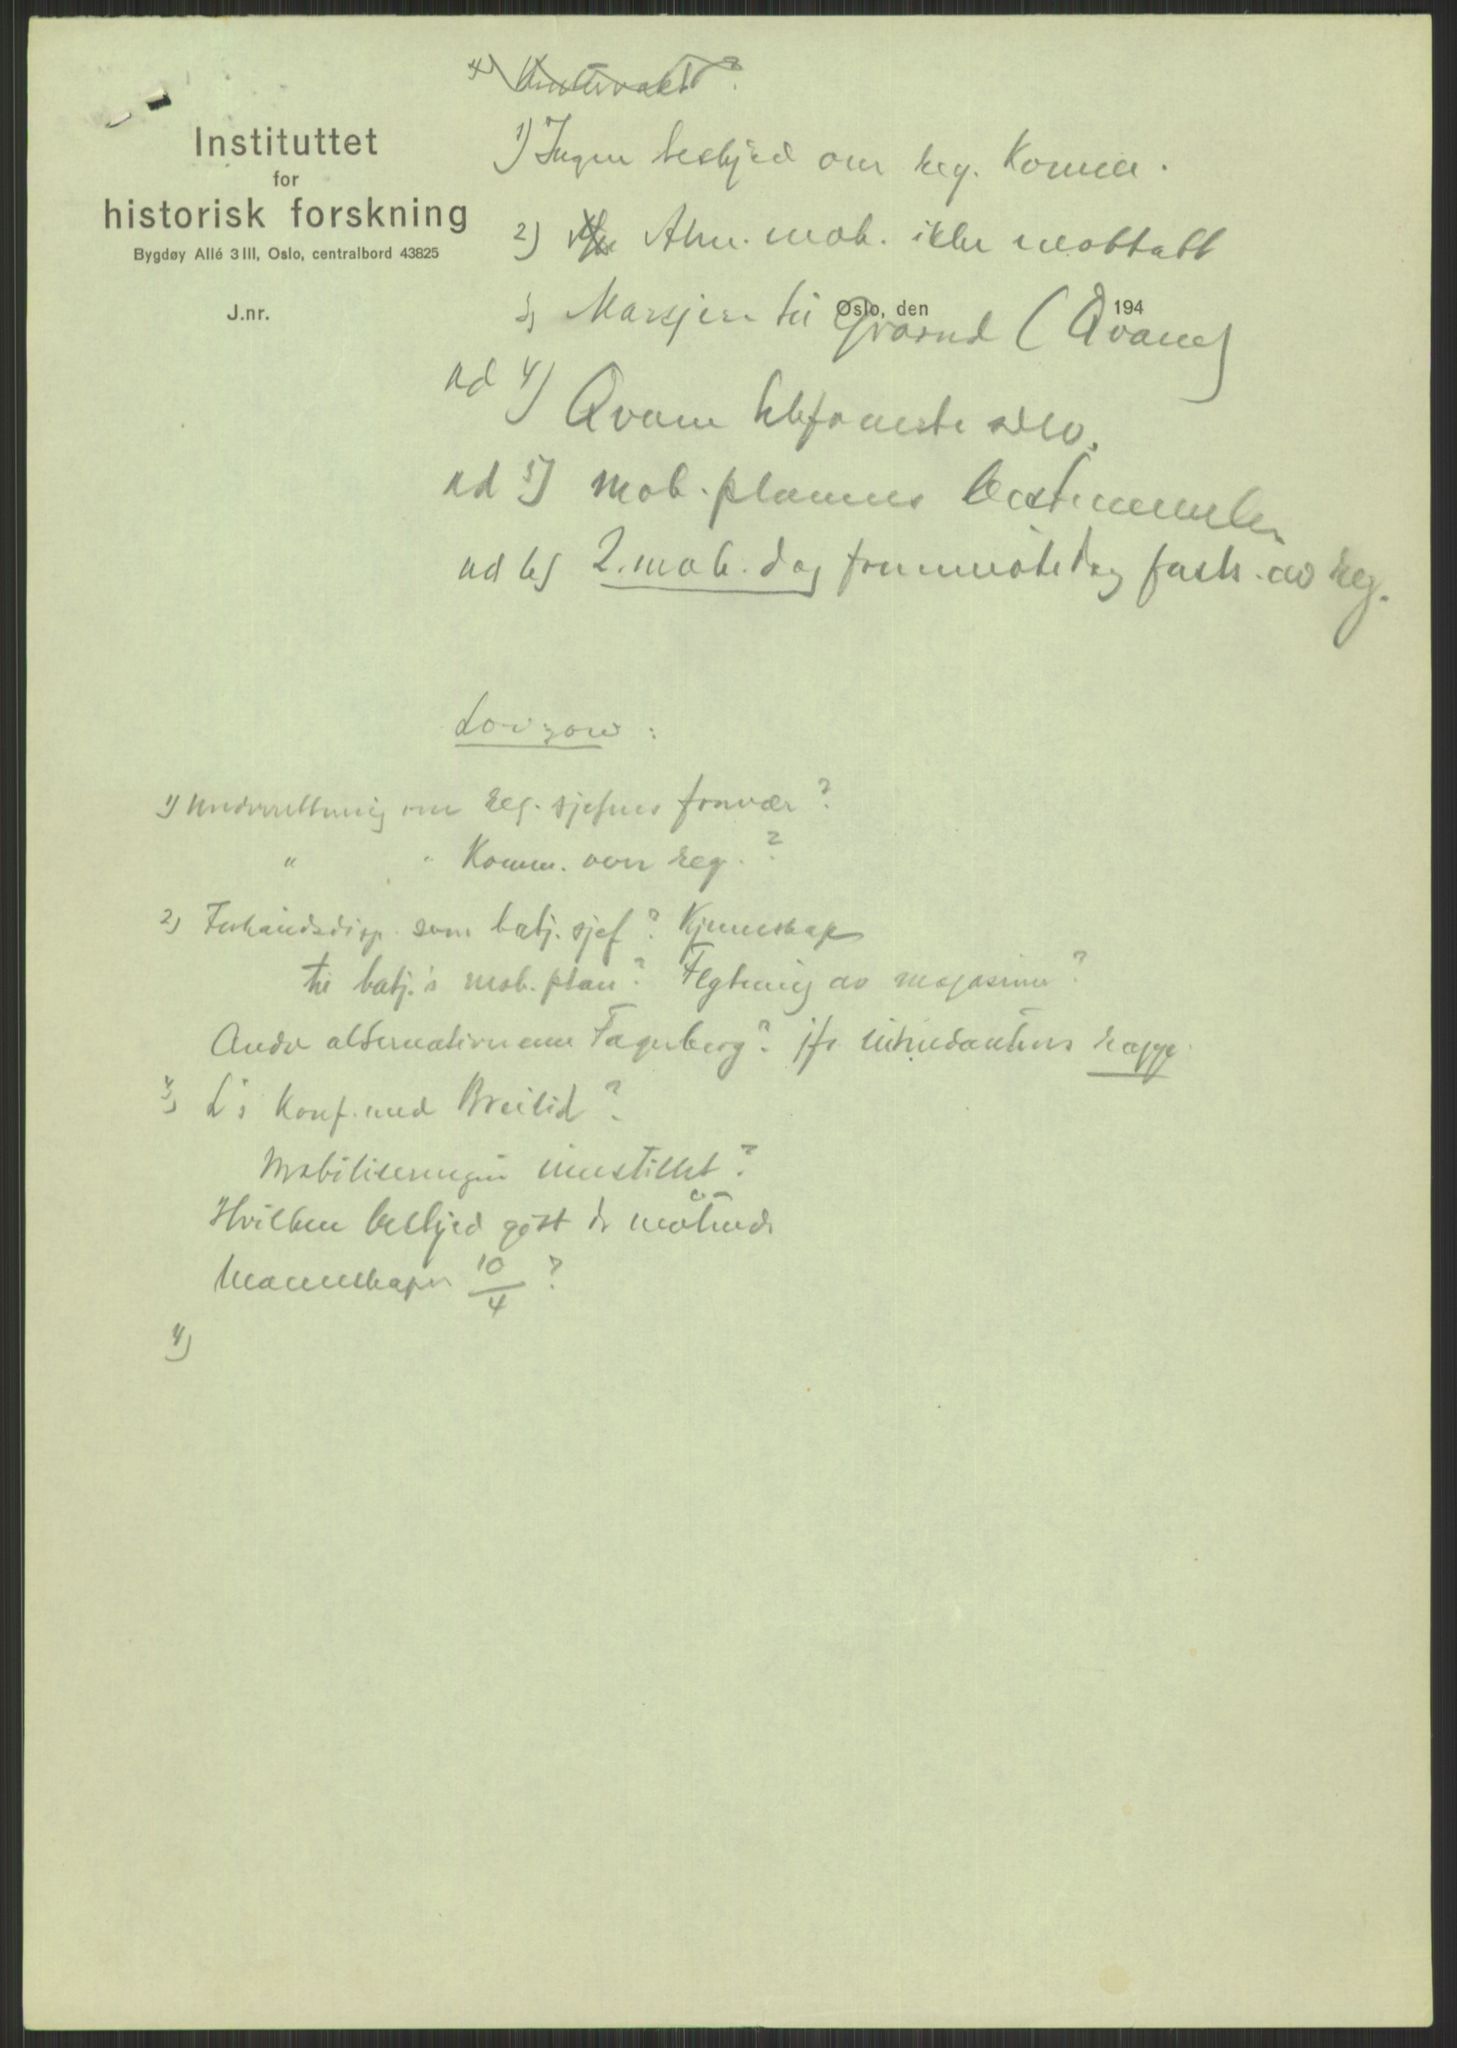 4)
1) Ingen beskjed om reg. Komm.
Instituttet
for
historisk forskning
Bygdøy Allé 3 III, Oslo, centralbord 43825
2) Alm. mob. ikke mottatt
J.nr.
Oslo, den 194
3) Marsjere til Gvarud (Qvam)
ad 4) Qvam telefonerte selv.
ad 5) mob.planens bestemmelser
ad 6) 2. mob. dag frammøtedag fasts. av reg.
Lowzow:
1) Underretning om reg. sjefens fravær?
" " Komm. over reg.?
2) Forhåndsdisp. som batj. sjef? Kjennskap
til batj.'s mob.plan? Flytning av magasiner?
Andre alternativer enn Fagerberg? jfr intendantens rapp.
3) L's konf. med Breilid?
Mobiliseringen innstillet?
Hvilken beskjed gitt de møtende
Mannskaper 10/4?
4)